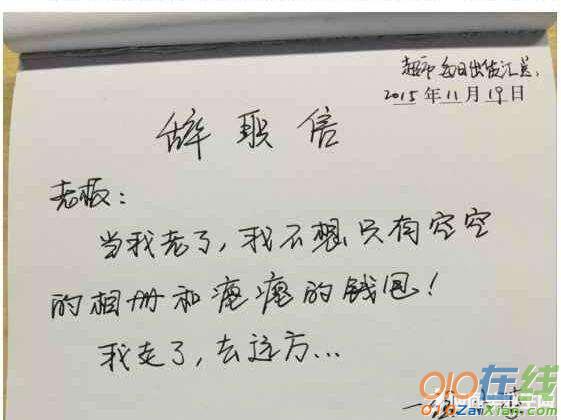 超市每日出货汇总:
2015年11月19日
辞职信
老板:
当我老了,我不想只有空空
的相册和瘪瘪的钱包!
我走了,去远方...
910在线
910ZaiXian.com